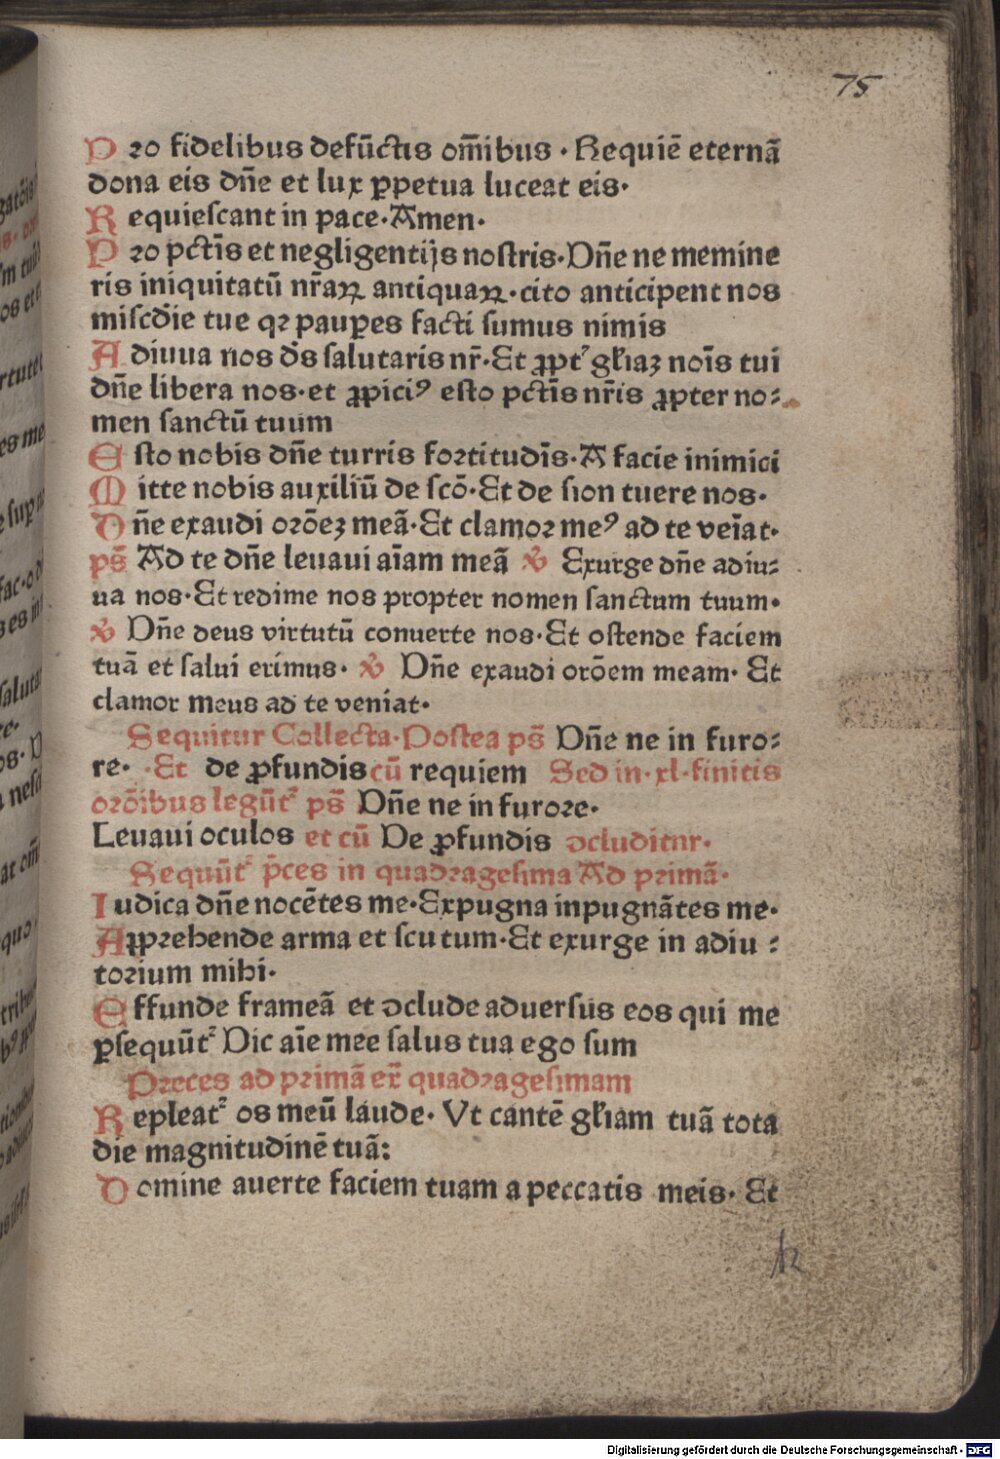 75
Pro fidelibus defūctis om̄ibus · Requiē eternā
dona eis dn̄e et lux ꝑpetua luceat eis·
Requieſcant in pace·Amen·
Pro pctīs et negligentijs noſtris·Dn̄e ne memine
ris iniquitatū nr̄aꝝ antiquaꝝ·cito anticipent nos
miſcd̄ie tue qꝛ pauꝑes facti ſumus nimis
Adiuua nos d̄s ſalutaris nr̄·Et ꝓpt᷑ gl̄iaꝫ noīs tui
dn̄e libera nos·et ꝓpiciꝰ eſto pctīs nr̄is ꝓpter no⸗
men ſanctū tuum
Eſto nobis dn̄e turris foꝛtitudīs·A facie inimici
Mitte nobis auxiliū de ſcō·Et de ſion tuere nos·
Dn̄e exaudi oꝛōeꝫ meā·Et clamoꝛ meꝰ ad te veīat·
ps̄ Ad te dn̄e leuaui aīam meā ℣ Exurge dn̄e adiu⸗
ua nos·Et redime nos propter nomen ſanctum tuum·
℣ Dn̄e deus virtutū conuerte nos·Et oſtende faciem
tuā et ſalui erimus· ℣ Dn̄e exaudi orōem meam· Et
clamor meus ad te veniat·
Sequitur Collecta·Poſtea ps̄ Dn̄e ne in furo⸗
re· ·Et de ꝓfundis cū requiem Sed in·xl·finitis
oꝛōibus legūt᷑ ps̄ Dn̄e ne in furoꝛe·
Leuaui oculos et cū De ꝓfundis ꝯcluditur·
Sequūt᷑ p̄ces in quadꝛageſima Ad pꝛimā·
Iudica dn̄e nocētes me·Expugna inpugnātes me·
Apprehende arma et ſcutum·Et exurge in adiu⸗
toꝛium mihi·
Effunde frameā et ꝯclude aduerſus eos qui me
ꝑſequūt᷑ Dic aīe mee ſalus tua ego ſum
Pꝛeces ad pꝛimā ex̄ quadꝛageſimam
Repleat᷑ os meū laude· Vt cantē gl̄iam tuā tota
die magnitudinē tuā:
Domine auerte faciem tuam a peccatis meis· Et
Digitalisierung gefördert durch die Deutsche Forschungsgemeinschaft - DFG